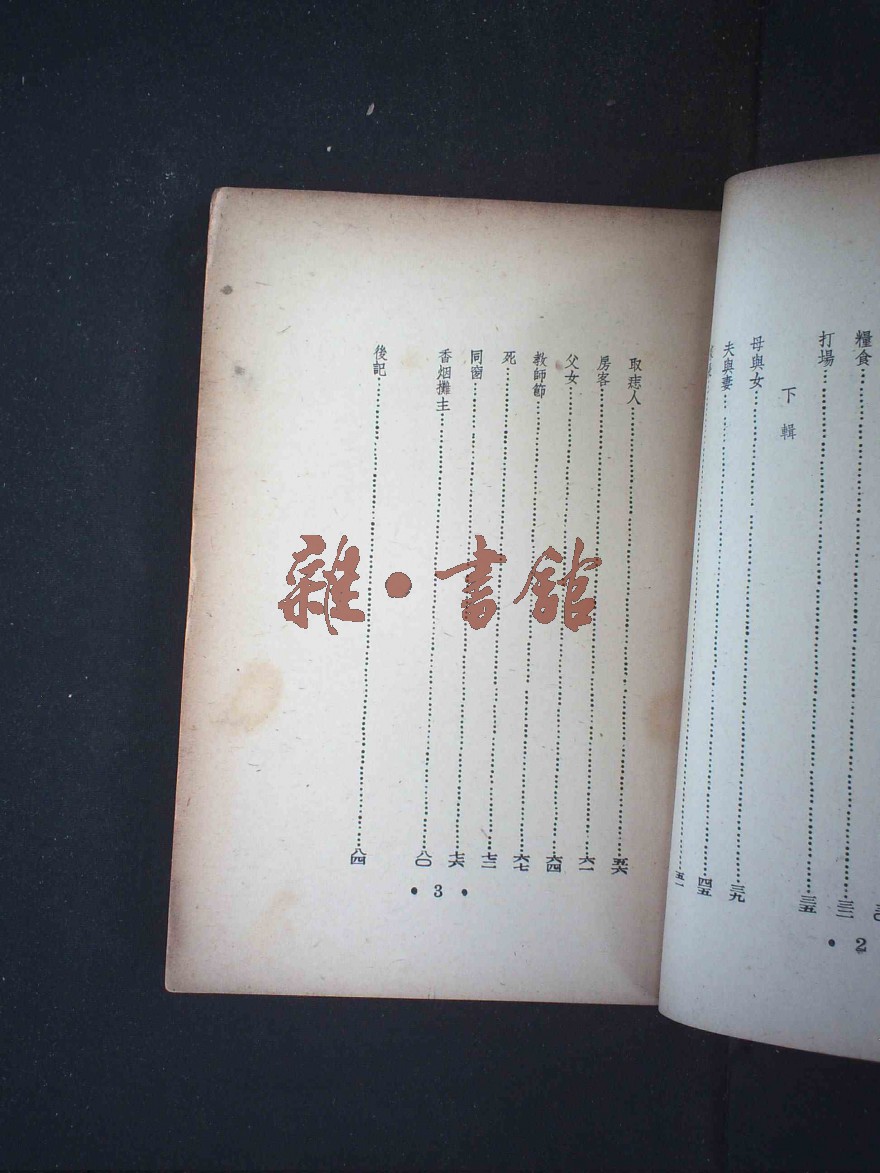 糧食…………三二
打場…………三五
下輯
母與女…………三九
夫與妻…………四五
五一
• 2
取痣人…………五六
房客…………六一
父女…………六四
教師節…………六七
死…………七二
同窗…………七六
香烟攤主…………八〇
後記…………八四
• 3 •
雜•書館